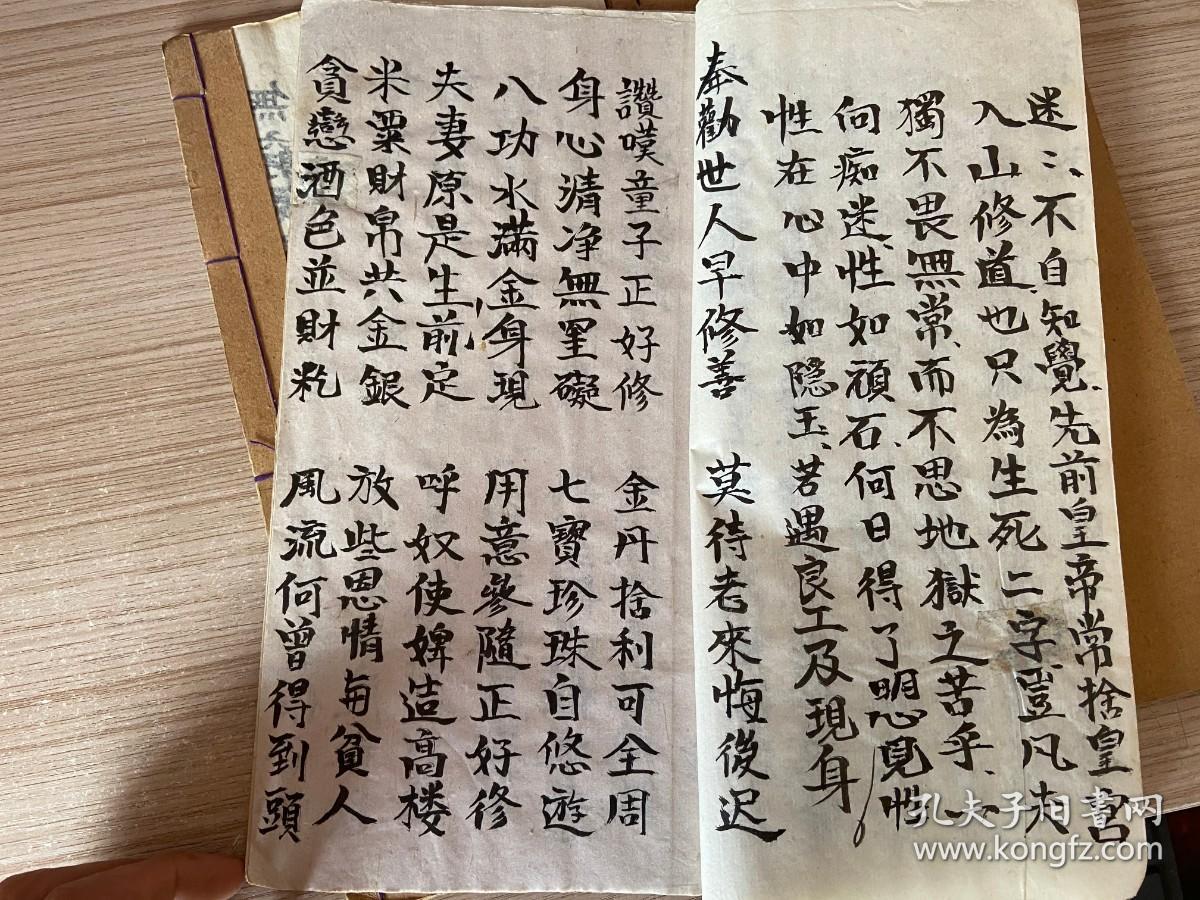 迷〻不自知覺先前皇帝常捨皇宮
入山修道也只為生死二字豈凡夫
獨不畏無常而不思地獄之苦乎一
向痴迷性如頑石何日得了明心見性
性在心中如隐玉若遇良工及現身
奉勸世人早修善 莫待老來悔後迟
讚嘆童子正好修 金丹捨利可全周
身心清净無罣礙 七寶珍珠自悠遊
八功水滿金身現 用意參隨正好修
夫妻原是生前定 呼奴使婢造高楼
米粟財帛共金銀 放些恩情每貧人
貪戀酒色並財氣 風流何曾得到頭
孔夫子旧書网
www.kongfz.com